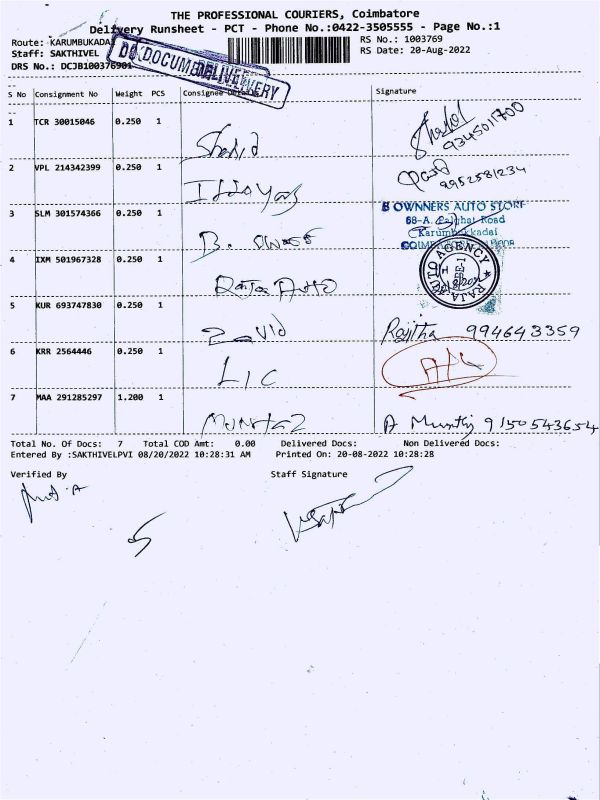 THE PROFESSIONAL COURIERS, Coimbatore
Delivery Runsheet - PCT - Phone No.:0422-3505555 - Page No.:1
Route: KARUMBUKADA
RS No.: 1003769
Staff: SAKTHIVEL
RS Date: 20-Aug-2022
DRS No.: DCJB100376901
DOCUMENT
DELIVERY
S No Consignment No Weight PCS Consignee Signature
1 TCR 30015046 0.250 1 Shahid 9345011700
2 VPL 214342399 0.250 1 9952581234
3 SLM 301574366 0.250 1 B. owners
B OWNNERS AUTO STORE
68-A, Palghat Road
Karumbukkadai
4 IXM 501967328 0.250 1 Raja Auto
RAJA AUTO AGENCY
5 KUR 693747830 0.250 1 Zavid Rajitha 994643359
6 KRR 2564446 0.250 1 LIC
7 MAA 291285297 1.200 1 Mumtaz A Mumtaj 9150543654
Total No. Of Docs: 7 Total COD Amt: 0.00 Delivered Docs: Non Delivered Docs:
Entered By :SAKTHIVELPVI 08/20/2022 10:28:31 AM Printed On: 20-08-2022 10:28:28
Verified By Staff Signature